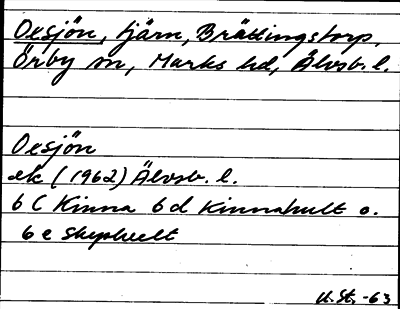 Oxsjön, tjärn, Brättingstorp,
Örby sn, Marks hd, Älvsb. l.
Oxsjön
ek (1962) Älvsb. l.
6 C Kinna 6 d Kinnahult o.
6 e Skephult
U. St. -63